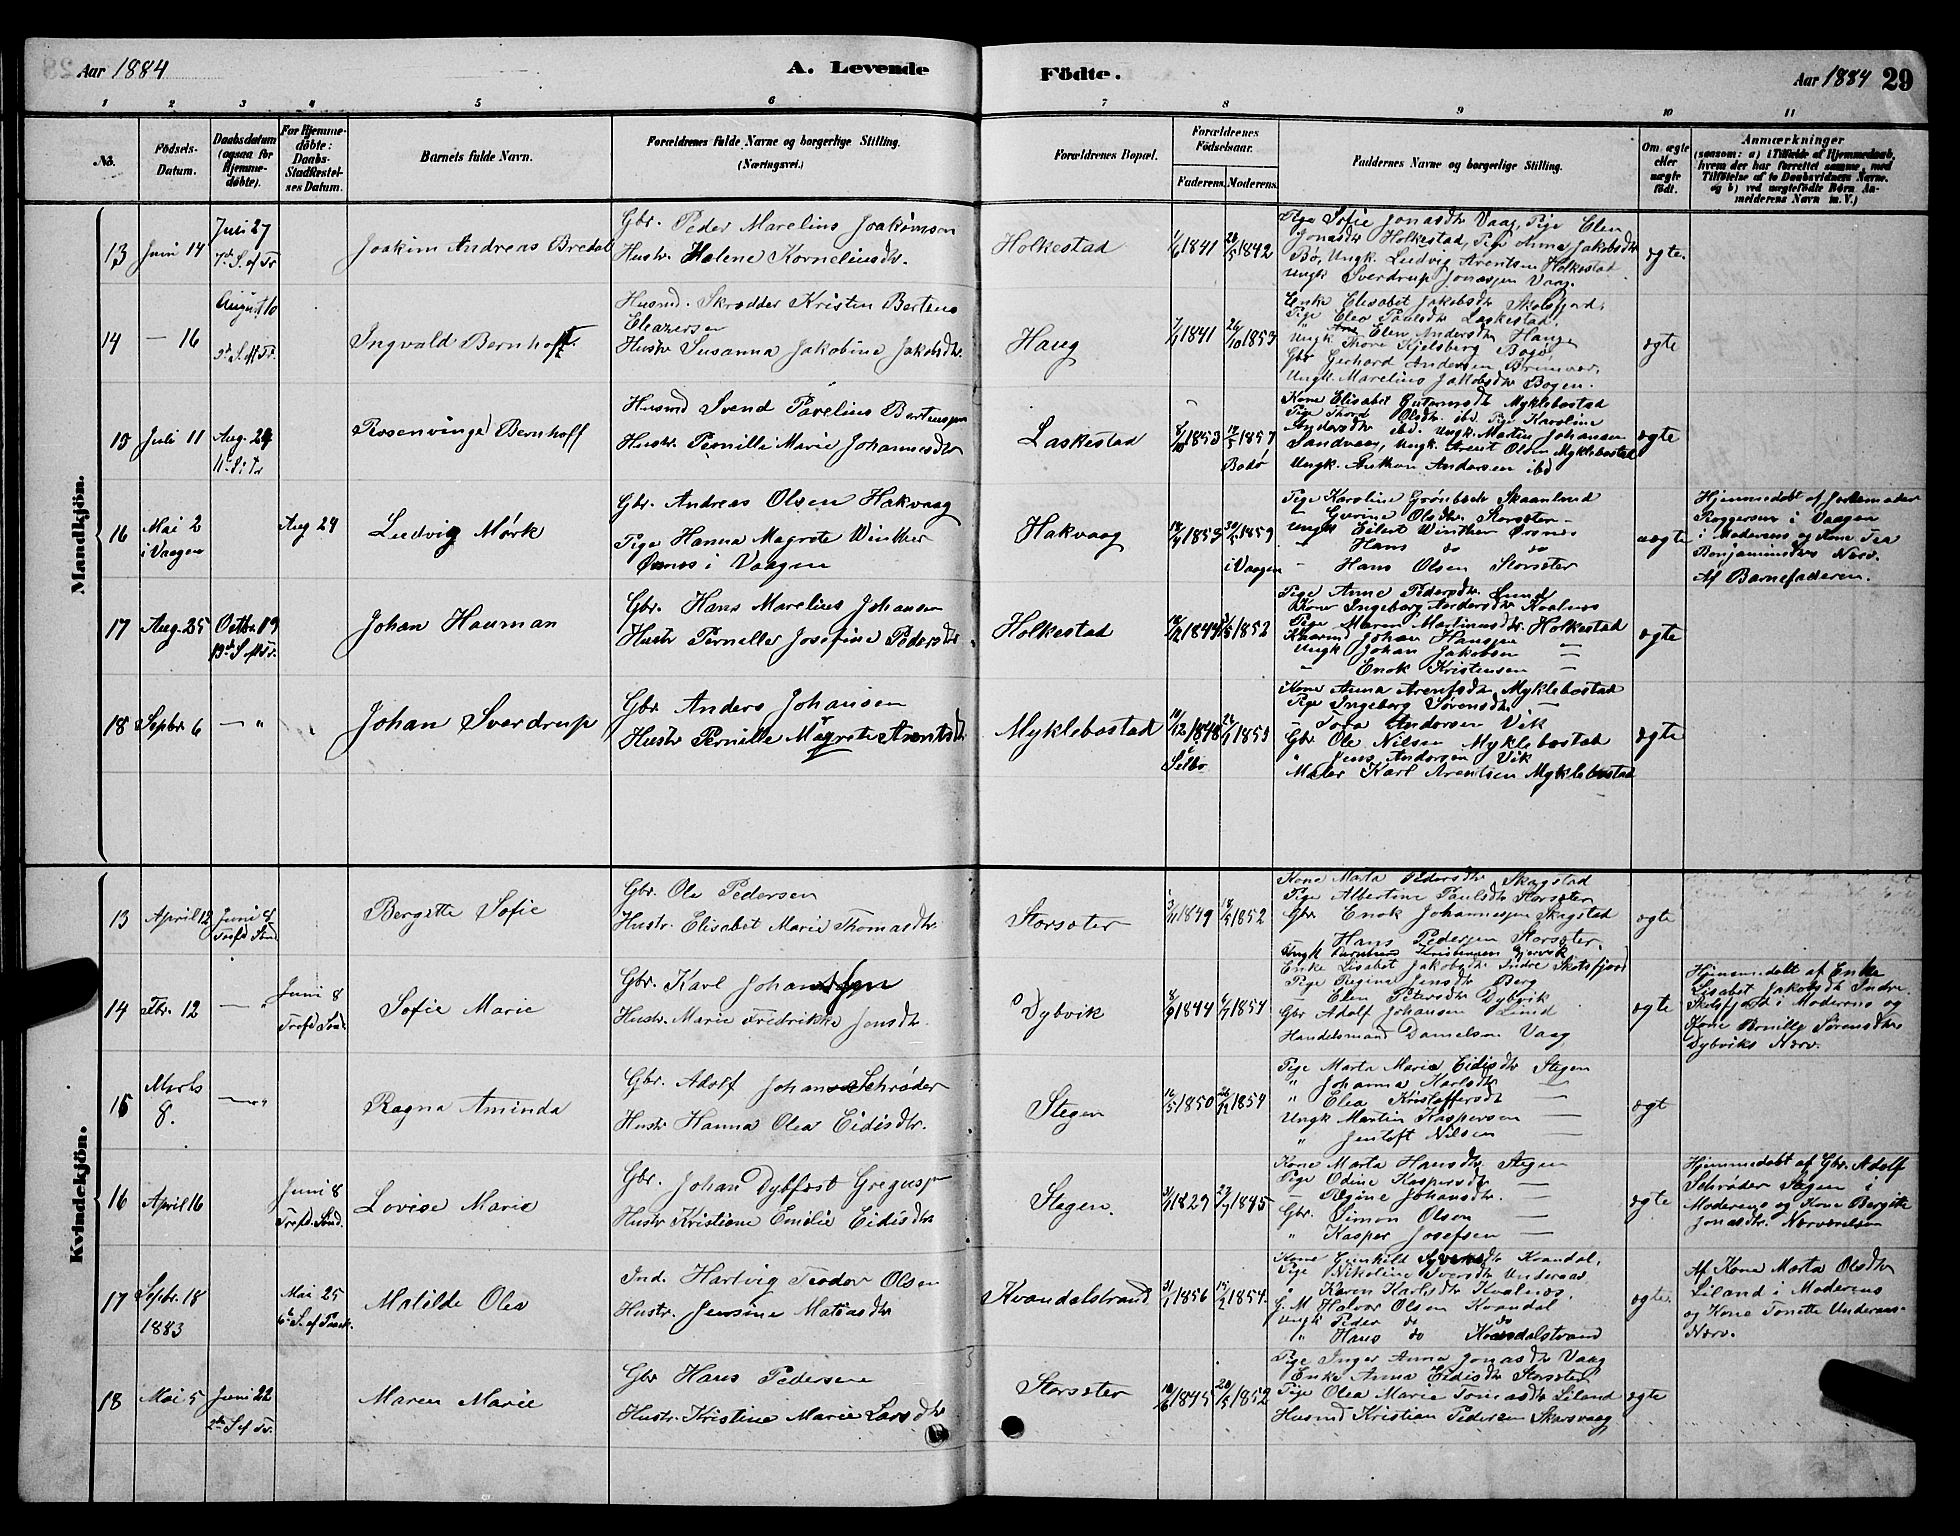 Aar 1884
A. Levende
Födte.
Aar 1884 29
1 2 3 4 5 6 7 8 9 10 11
No.
Födsels-Datum.
Daabsdatum (ogsaa for Hjemme-døbte).
For Hjemme-døbte: Daabs-Stadfæstel-ses Datum.
Barnets fulde Navn.
Forældrenes fulde Navne og borgerlige Stilling. (Næringsvei.)
Forældrenes Bopæl.
Forældrenes Födselsaar.
Faderens. Moderens.
Faddernes Navne og borgerlige Stilling.
Om ægte eller uægte födt.
Anmærkninger
(saasom: a) i Tilfælde af Hjemmedaab, hvem der har forrettet samme, med Tilföielse af to Daabsvidners Navne, og b) ved uægtefödte Börn Anmelderens Navn m. V.)
Mandkjön.
13 Juni 14 Juni 27 7de S. ef Tr
Joakim Andreas Bredal
Gbr. Peder Marelius Joakimsen
Hustr. Halene Korneliusdtr.
Holkestad
1/6 1841 28/5 1842
Pige Sofie Jonasdtr Vaag, Pige Elen
Jonasdtr Holkestad, Pige Anna Jakobsdtr
Bø, Ungk. Ludvig Arentsen Holkestad
Ungk Sverdrup Jonassen Vaag.
ægte.
14 — 16 August 10
Ingvald Bernhoft
Husmd. Skrædder Kristen Berteus
Eleazersen
Hustr Susanna Jakobine Jakobsdtr.
Haug
7/1 1841 26/10 1853
Enke Elisabet Jakobsdtr Skotsfjord,
Pige Elea Paulsdtr Laskestad,
" Elen Andersdtr Haug
Ungk Thore Kjelsberg Bogø,
Gbr Gerhard Andersen Brennvær,
Ungk. Marelius Jakobsdtr Bogen.
ægte
15 Juli 11 Aug. 24 11te S. i Tr
Rosenvinge Bernhoff
Husmd Svend Parelius Berteussen
Hustr. Pernille Marie Johannesdtr
Laskestad
1853 1857
Bodø
Kone Elisabet Gutormsdtr Myklebostad
Pige Thora Olsdtr. ibd. Pige Karoline
Andersdtr ibd. Ungk. Martin Johansen
Sandvaag, Ungk. Arent Olsen Myklebostad
Ungk. Anthon Andersen ibd
ægte
16 Mai 2 i Vaagen Aug 24
Ludvig Mørk
Gbr. Andreas Olsen Hakvaag
Pige Hanna Magrete Winther
Ørsnes i Vaagen
Hakvaag
1853 1859
i Vaagen
Pige Karoline Grönbech Skaanland
— Gurine Olsdtr. Storsæter —
Ungk Eilert Winther Ørsnes
" Hans do do
— Hans Olsen Storsæter
uægte
Hjemmedøbt af Jordemoder
Roggersen i Vaagen
i Moderens og Kone Tea
Benjaminsdtrs Nærv.
Af Barnefaderen.
17 Aug. 25 Octbr. 19 19de S. ef Tr.
Johan Hauman
Gbr. Hans Marelius Johansen
Hustr Pernille Josefine Pedersdtr
Holkestad
1844 1852
Pige Anne Pedersdtr Lund
Kone Ingeborg Andersdtr Kvalnes
Pige Maren Martinusdtr. Holkestad
Kaarmd Johan Hansen —
Ungk Johan Jakobsen —
— Enok Kristensen —
ægte
18 Septbr. 6 — "
Johan Sverdrup
Gbr Anders Johansen
Hustr Pernille Magrete Arentsdtr
Myklebostad
10/12 1848 1853
Selbo
Kone Anna Arentsdtr Myklebostad
Pige Ingeborg Sørensdtr —
— Tora Andersen Vik
Gbr. Ole Nilsen Myklebostad
" Jens Andersen Vik
Maler Karl Arentsen Myklebostad
ægte
Kvindekjön.
13 April 12 Juni 8 Trefd. Sønd
Bergitte Sofie
Gbr. Ole Pedersen
Hustr. Elisabet Marie Thomasdtr.
Storsæter
1849 1852
Kone Marta Pedersdtr Skagstad
Pige Albertine Paulsdtr Storsæter
Gbr Enok Johannessen Skagstad
Hans Pedersen Storsæter.
Ungk Kristensen Gjervik
ægte
14 Febr. 12 — " Juni 8 Trefd. Sønd.
Sofie Marie
Gbr. Karl Johansen
Hustr. Marie Fredrikke Jensdtr.
Dybvik
8/9 1844 1854
Enke Lisabet Jakobsdtr Indre Skotsfjord
Pige Regine Jensdtr Berg
— Elen Petersdtr Dybvik
Gbr Adolf Johansen Lund
Handelsmand Danielsen Vaag
ægte
Hjemmedøbt af Enke
Lisabet Jakobsdtr Indre
Skotsfjord i Moderens og
Kone Pernille Sørensdtrs
Dybviks Nærv.
15 Marts 8. — "
Ragna Aminda
Gbr. Adolf Johan Schrøder
Hustr Hanna Olea Eidisdtr.
Stegen
16/5 1850 26/12 1854
Pige Marta Marie Eidisdtr Stegen
" Johanna Karlsdtr —
" Elea Kristoffersdtr —
Ungk Martin Kaspersen —
" Jentoft Nilsen —
ægt
16 April 16 Juni 8 Trefd. Sønd.
Lovise Marie
Gbr. Johan Dybfest Gregussen
Hustr Kristiane Emilie Eidisdtr
Stegen.
1829 1845
Kone Marta Hansdtr Stegen
Pige Odine Kaspersdtr —
— Regine Johansdtr. —
Gbr. Simon Olsen —
" Kasper Josefsen —
ægte
Hjemmedøbt af Gbr. Adolf
Schrøder Stegen i
Moderens og Kone Bergitte
Jonasdtr. Nærværelsen
17 Septbr. 18 1883 Mai 25 6te S. ef Paask.
Matilde Olea
Ind. Hartvig Teodor Olsen
Hustr. Jensine Matisdtr
Kvandalstrand
31/1 1856 15/2 1854.
Kone Gunhild Syversdtr Kvandal,
Pige Nikoline Iversdtr Underaas,
" Karen Karlsdtr Kvalnes.
G. M Halvor Olsen Kvandal
Ungk Peder do do
" Hans do Kvandalstrand
ægte.
Af Kone Marta Olsdtr
Liland i Moderens
og Kone Tonette Underaas
Nærv.
18 Mai 5 Juni 22 2den S. ef Tr.
Maren Marie
Gbr Hans Pedersen
Hustr. Kristine Marie Larsdtr
Storsæter
1845 20/5 1852
Pige Inger Anna Jonasdtr Vaag
Enke Anna Eidisdtr Storsæter
Pige Olea Marie Tomasdtr Liland
Husmd Kristian Pedersen Skarsvaag
ægte